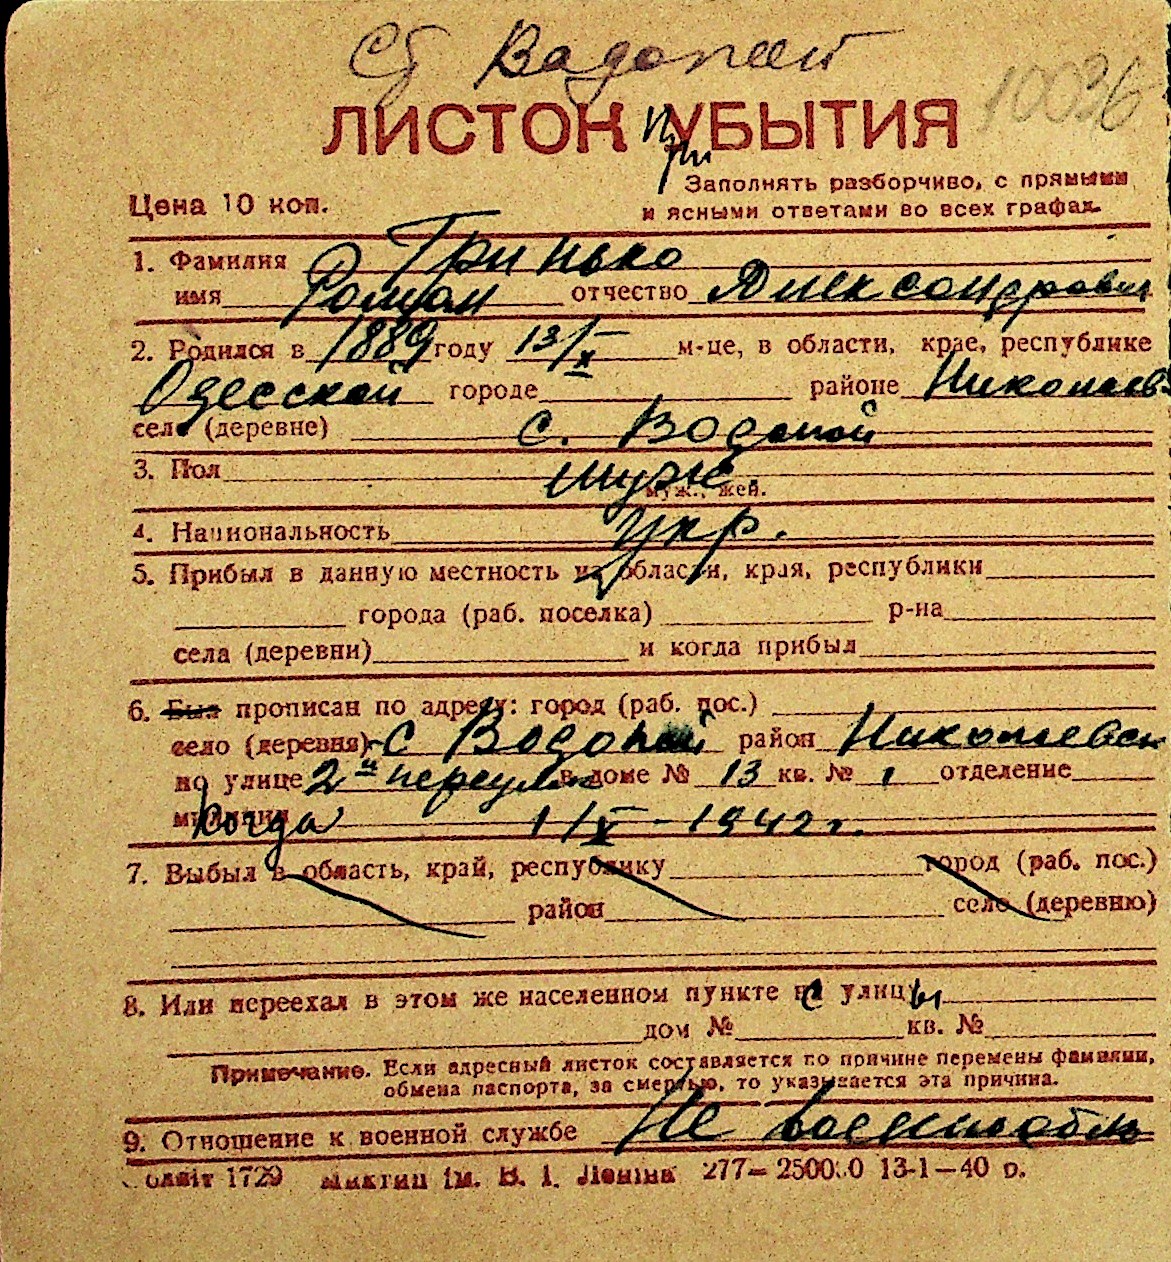 Ст Вадопой
10036
ЛИСТОК При УБЫТИЯ
Цена 10 коп.
Заполнять разборчиво, с прямыми
и ясными ответами во всех графах.
1. Фамилия Гринько
имя Роман отчество Александрович
2. Родился в 1889 году 13/X м-це, в области, крае, республике
Одесской городе районе Николаевск
село (деревне) с. Водопой
3. Пол муж.
муж., жен.
4. Национальность укр.
5. Прибыл в данную местность из области, края, республики
города (раб. поселка) р-на
села (деревни) и когда прибыл
6. Был прописан по адресу: город (раб. пос.)
село (деревня) с Водопой район Николаевск
по улице 2й переулок в доме № 13 кв. № 1 отделение
милиции Когда 1/X - 1942 г.
7. Выбыл в область, край, республику город (раб. пос.)
район село (деревню)
8. Или переехал в этом же населенном пункте с улицы
дом № кв. №
Примечание. Если адресный листок составляется по причине перемены фамилии,
обмена паспорта, за смертью, то указывается эта причина.
9. Отношение к военной службе Не военнообяз
1729 ім. В. І. Леніна 277— 13-1—40 р.